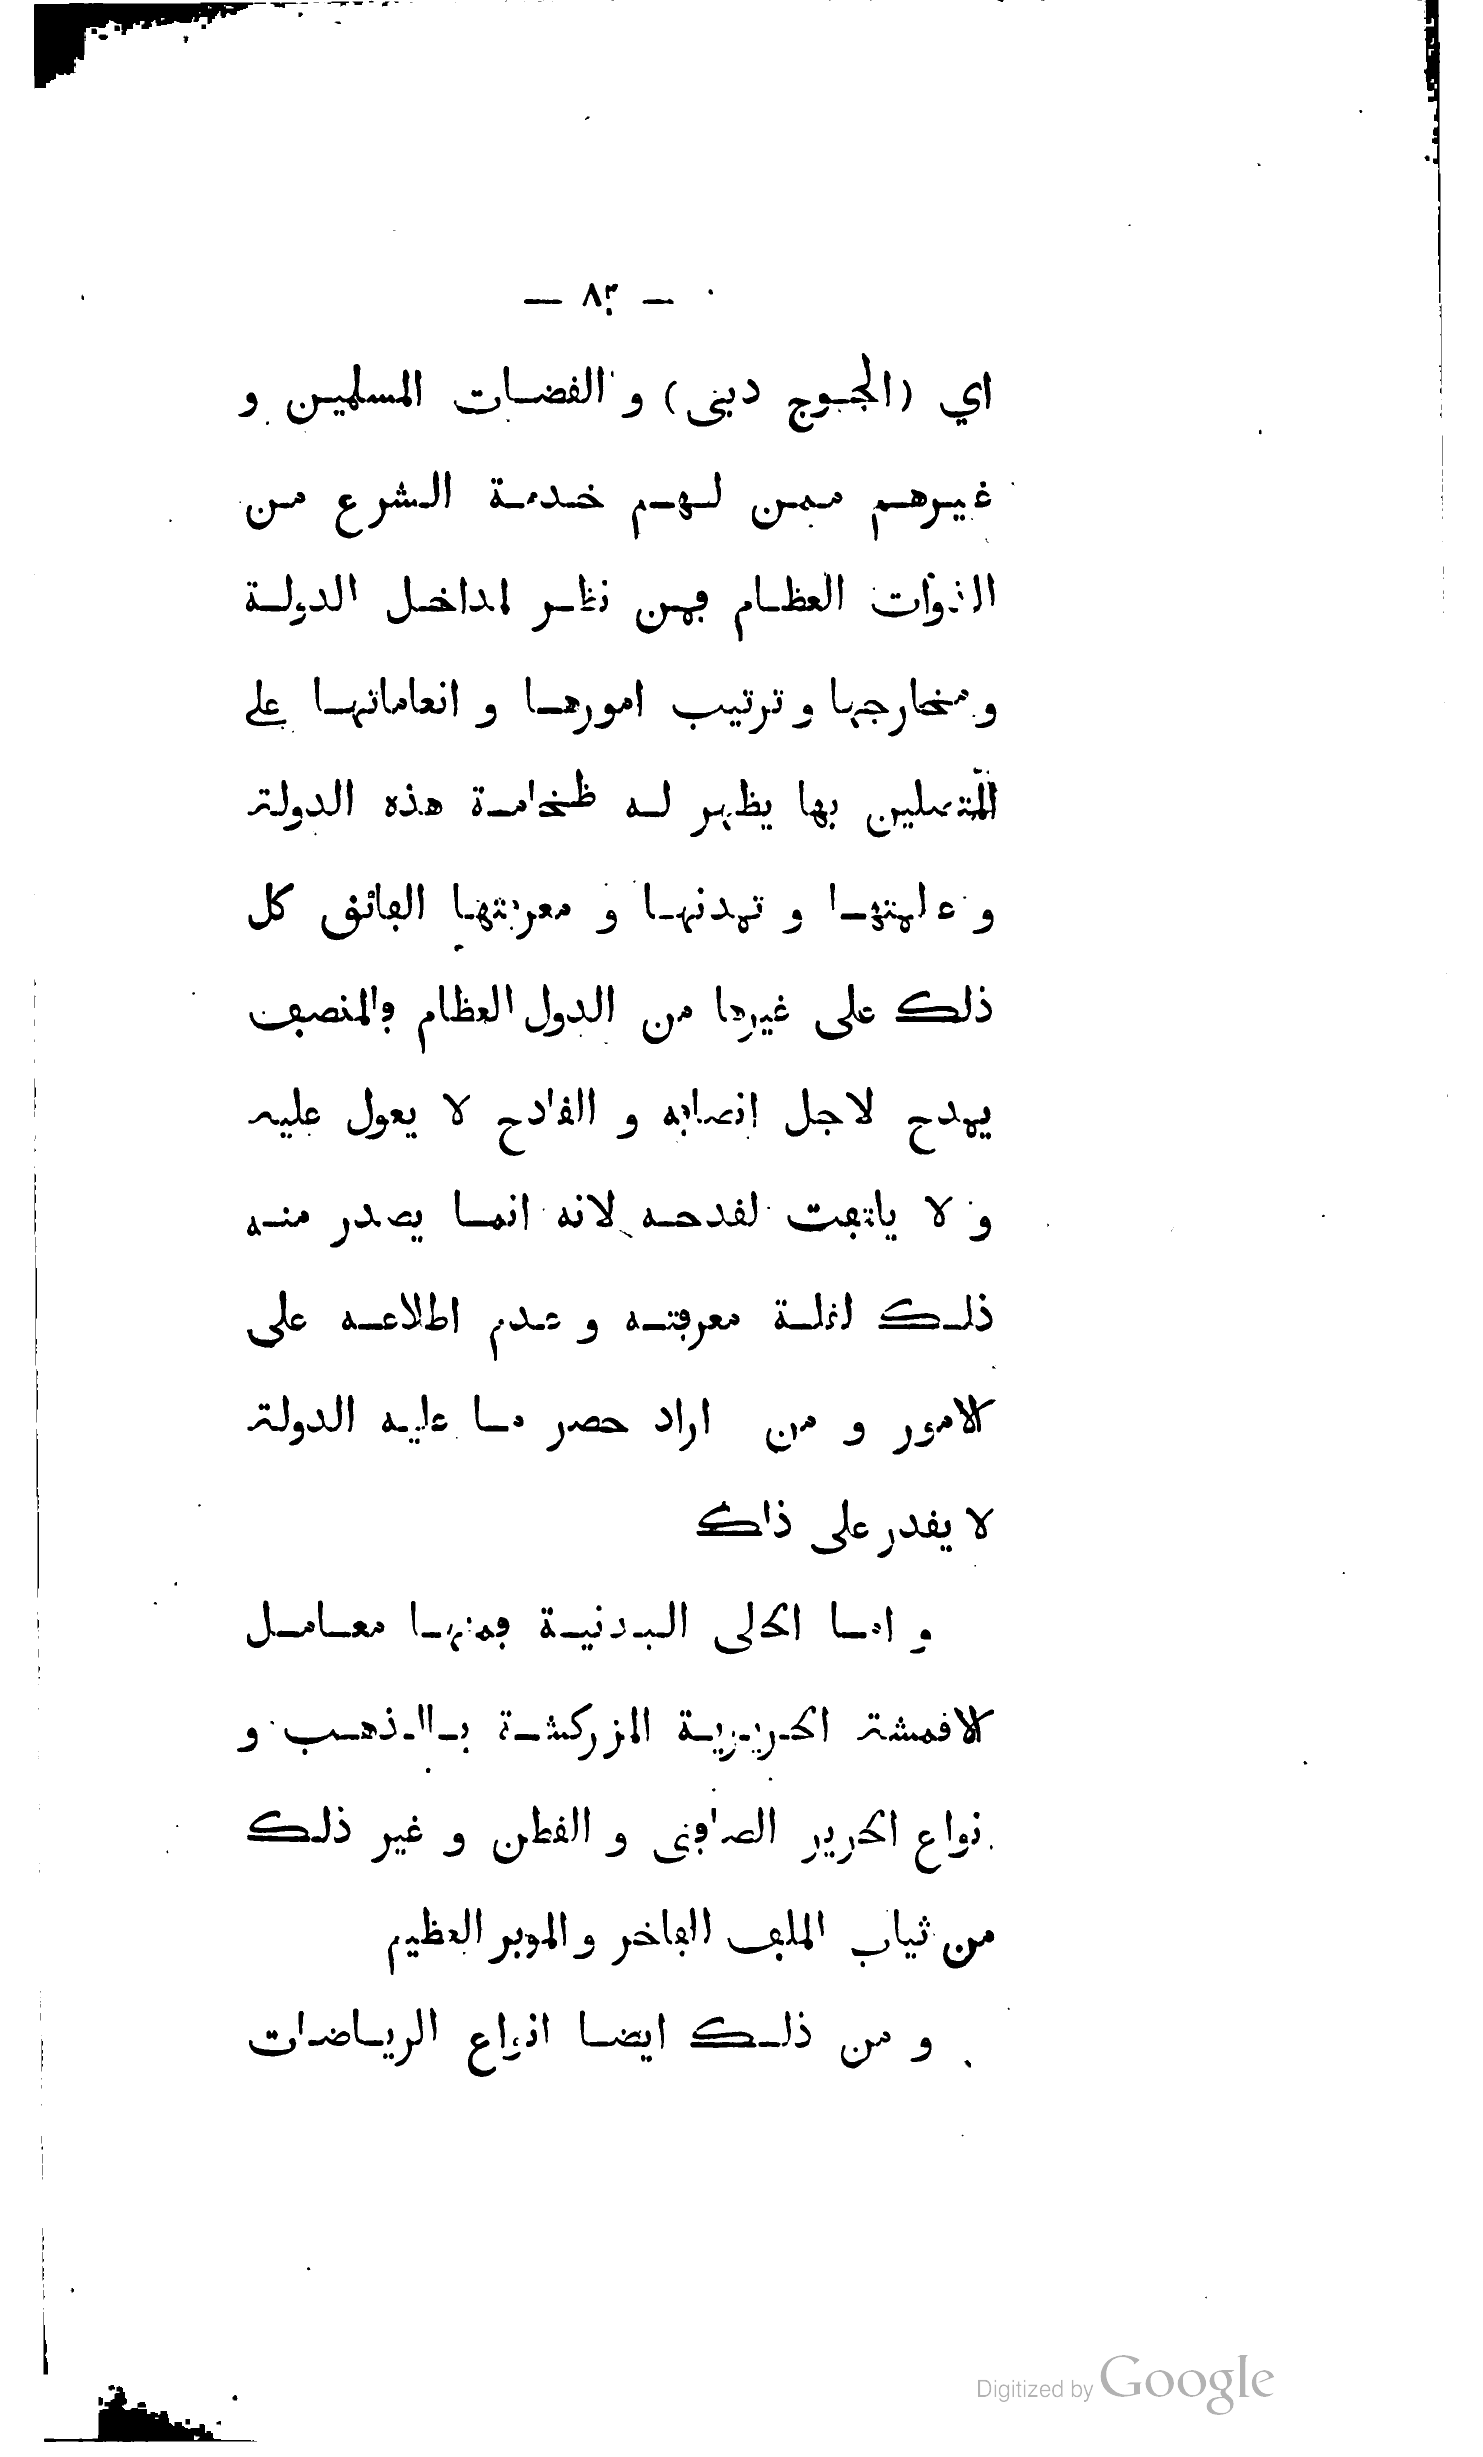 — ٨٣ —
اي (الجوج دبنى) و الفضات المسلمين و
غيرهم ممن لهم خدمة الشرع من
الذوات العظام ڢمن نظر لمداخل الدولة
و مخارجها و ترتيب امورها و انعاماتها على
المتصلين بها يظهر له ظخامة هذه الدولة
و عالمتها و تمدنها و معرڢتها الڢائڧ كل
ذلك على غيرها من الدول العظام ڢالمنصڢ
يمدح لاجل إنصاڢه و الڧادح لا يعول عليه
و لا ياتڢت لڧدحه لانه انما يصدر منه
ذلك لڧلة معرڢته و عدم اطلاعه على
الامور و من اراد حصر ما عليه الدولة
لا يڧدر على ذاك
و اما الحلى البدنية ڢمنها معامل
الاڧمشة الحريرية المزركشة بالذهب و
نواع الحرير الصاڢى و الڧطن و غير ذلك
من ثياب الملڢ الڢاخر و الموبر العظيم
و من ذلك ايضا انواع الرياضات
Digitized by Google